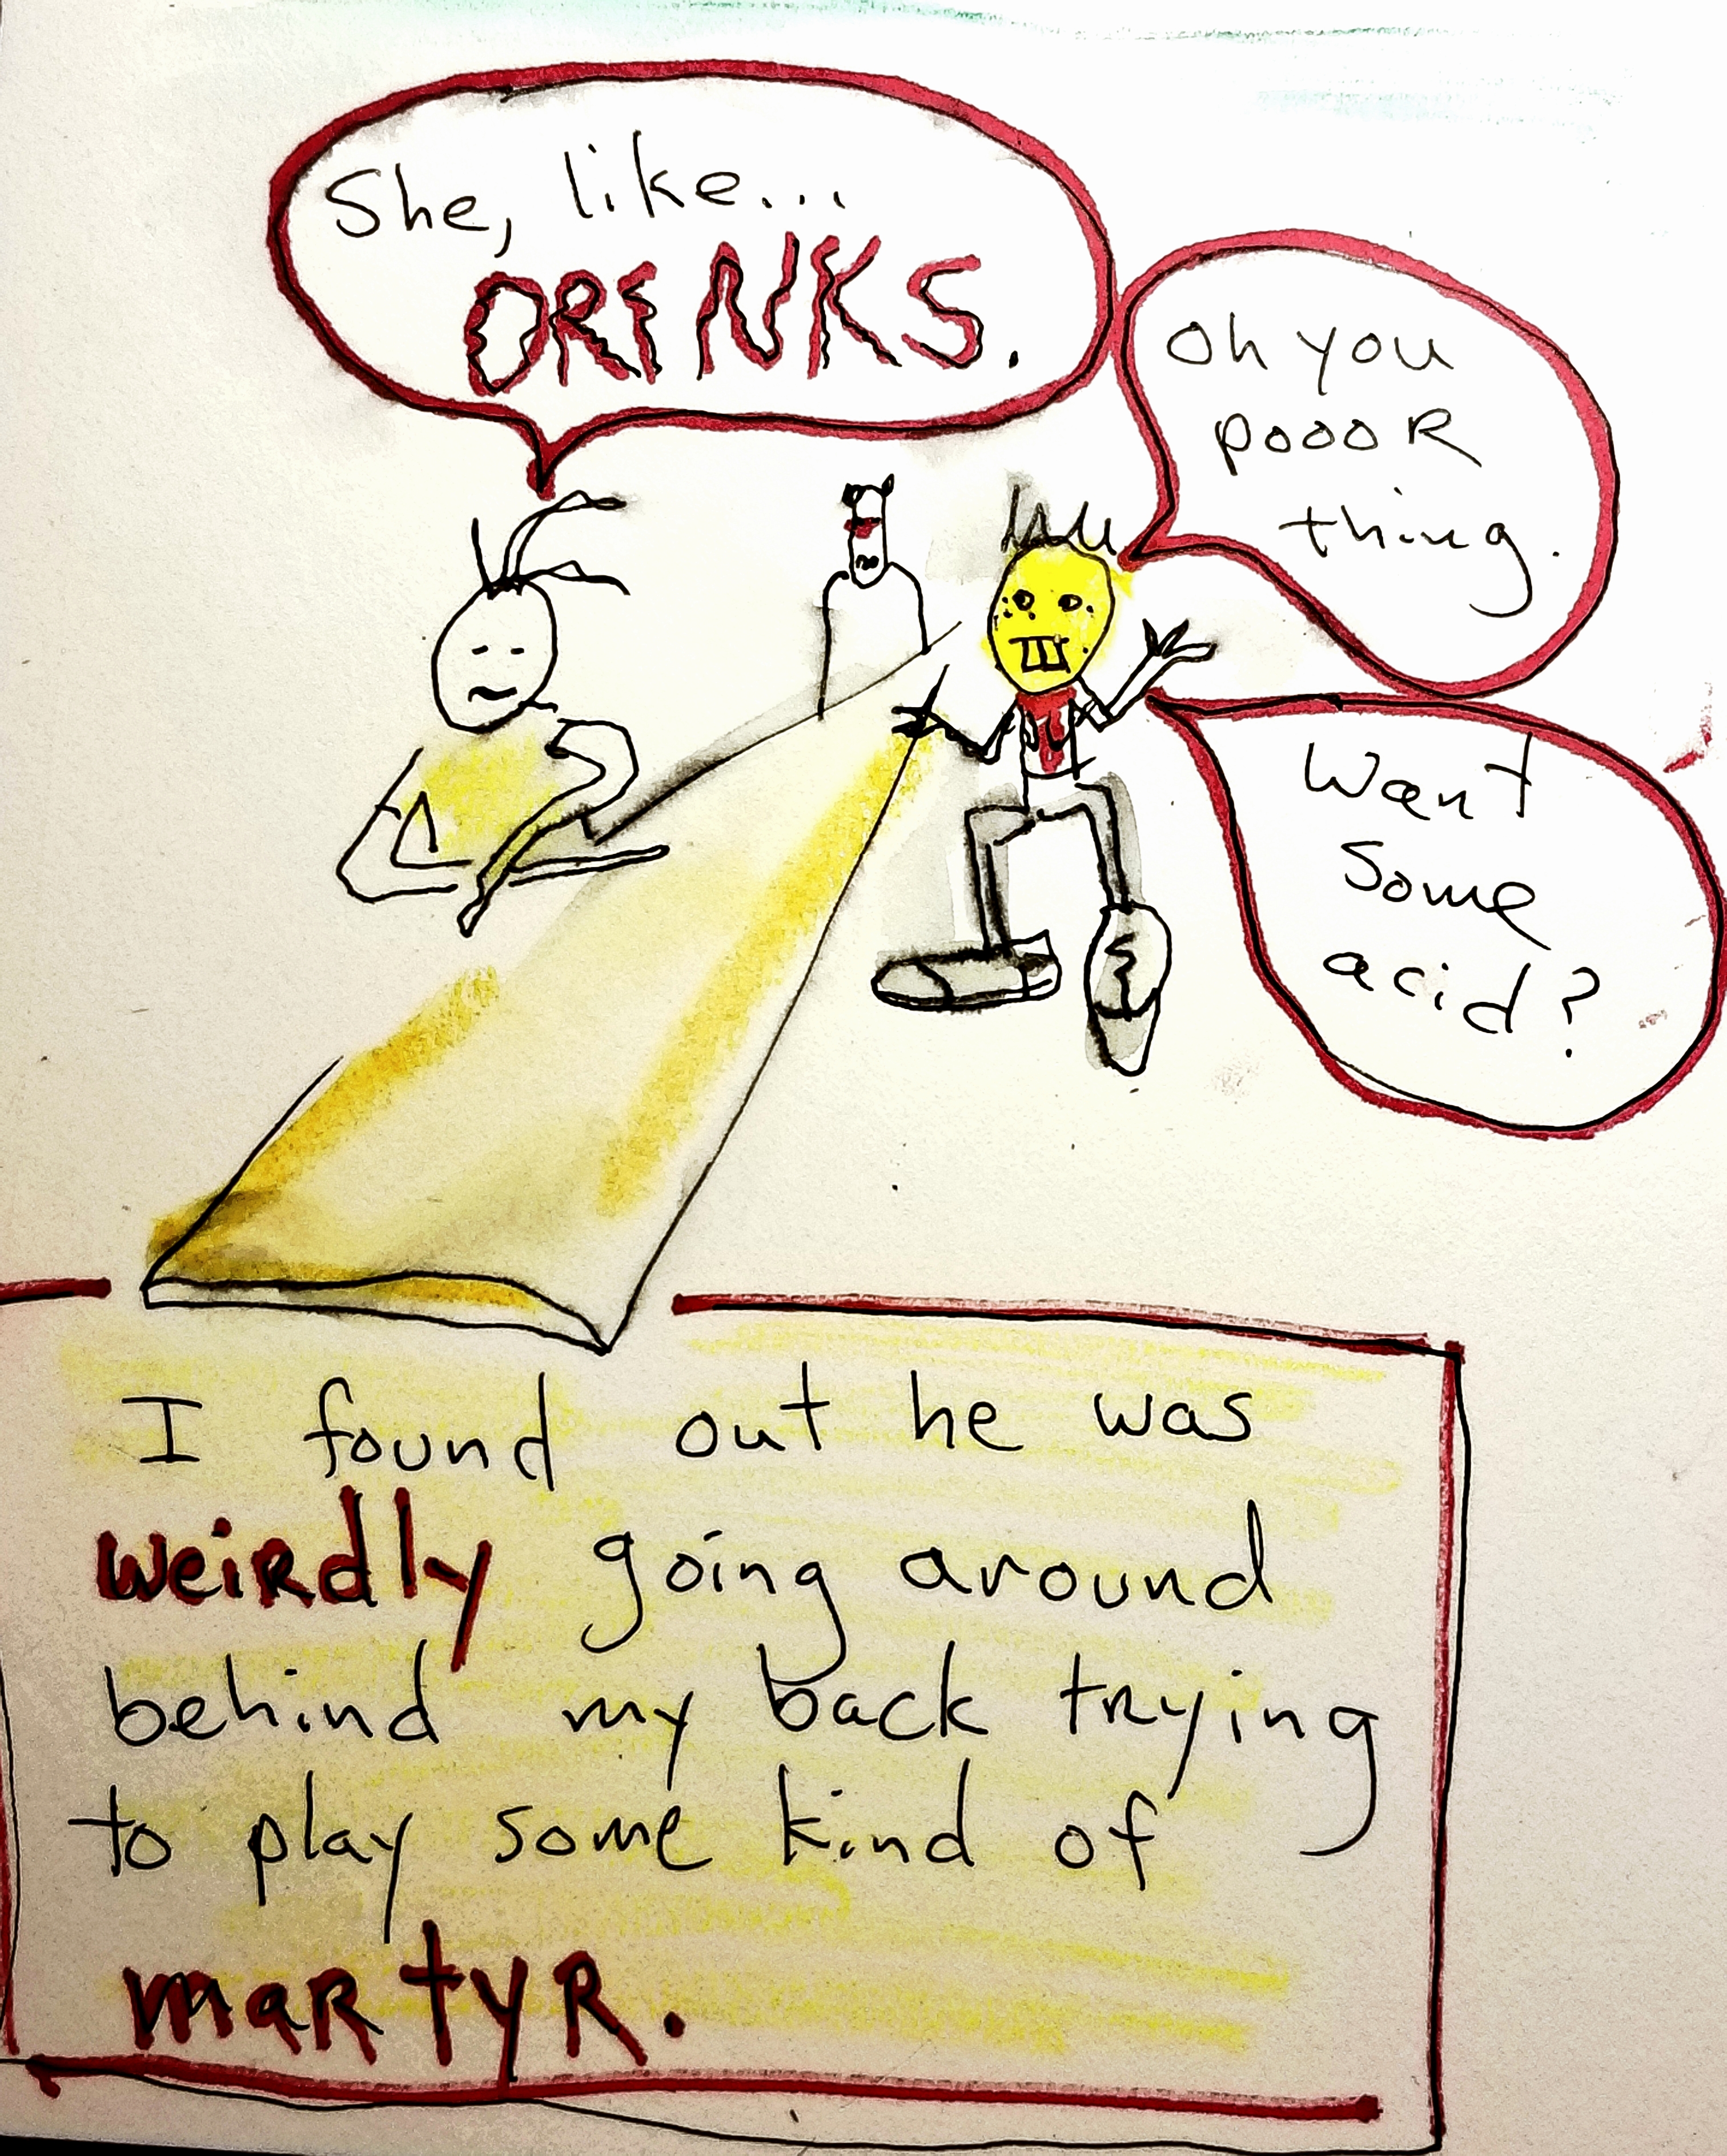 She, like...
DRINKS.
Oh you
poooR
thing.
Want
Some
acid?
I found out he was
weiRdly going around
behind my back trying
to play some kind of
maRtyR.